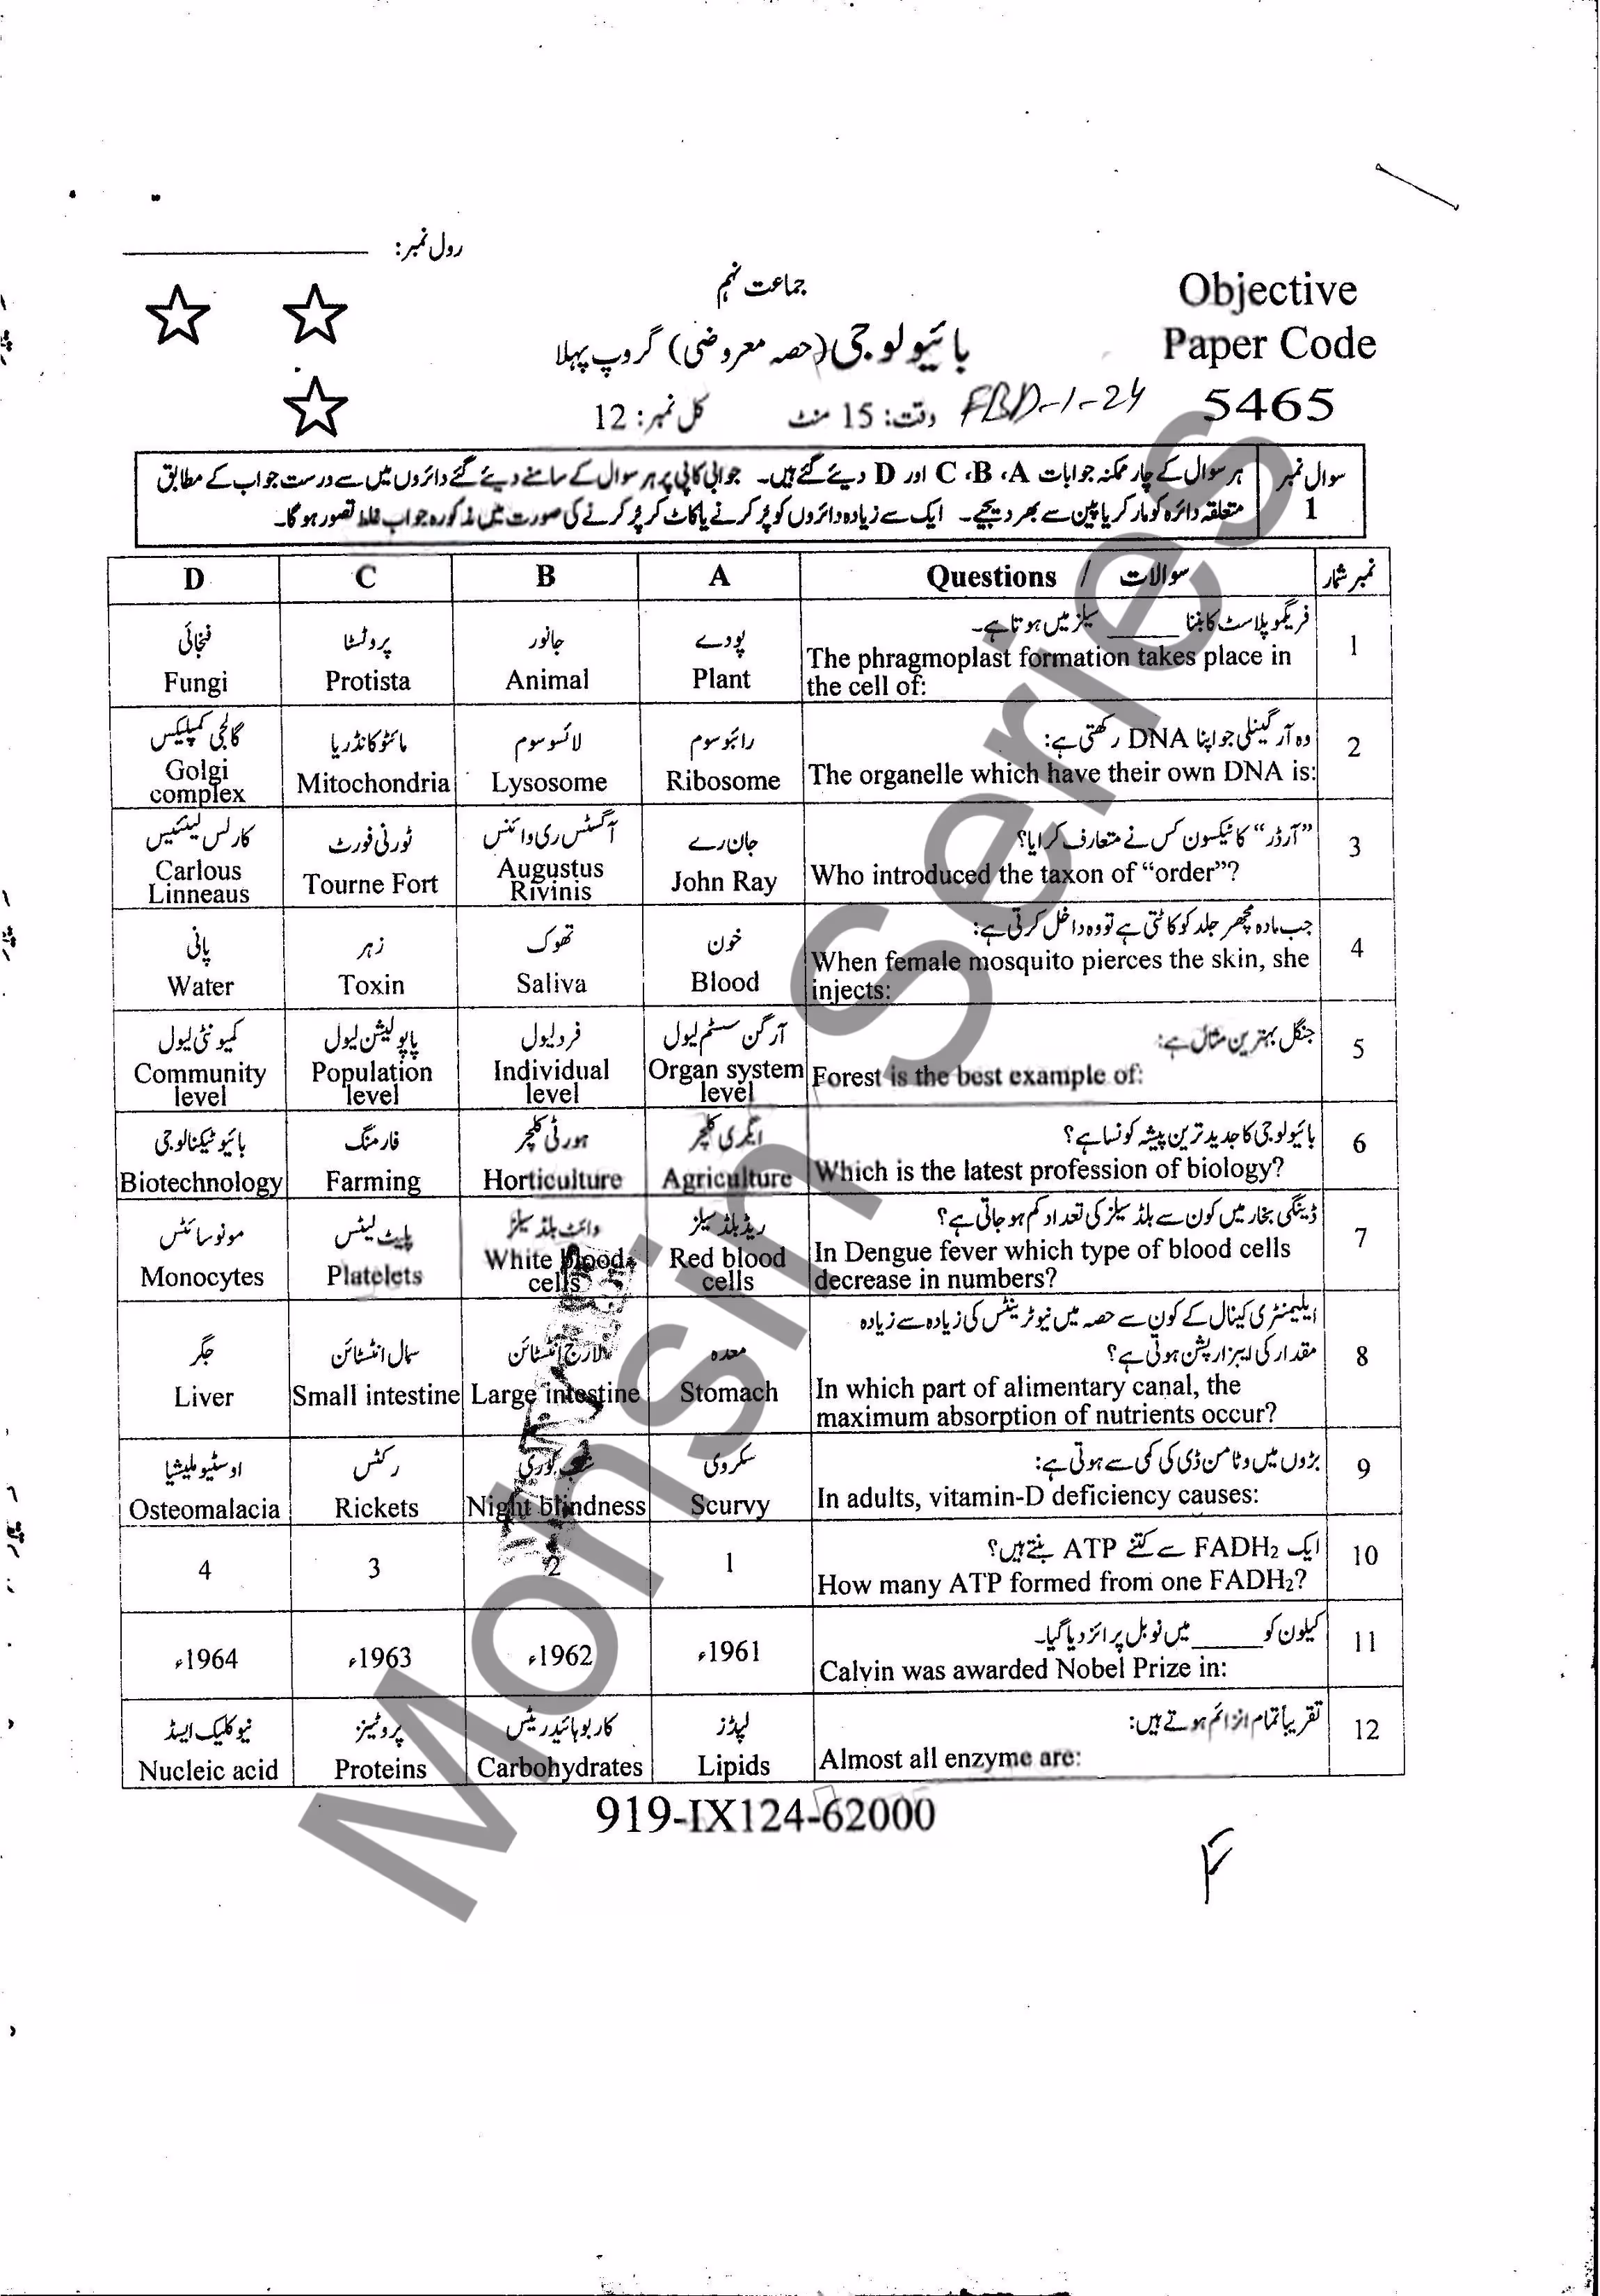 رول نمبر:
جماعت نہم
Objective
Paper Code
5465
بائیولوجی (حصہ معروضی) گروپ پہلا
FBD-1-24
وقت: 15 منٹ
کل نمبر: 12
سوال نمبر 1
ہر سوال کے چار ممکنہ جوابات A، B، C اور D دیئے گئے ہیں۔ جوابی کاپی پر ہر سوال کے سامنے دیئے گئے دائروں میں سے درست جواب کے مطابق
متعلقہ دائرہ کو مارکر یا پین سے بھر دیجیے۔ ایک سے زیادہ دائروں کو پُر کرنے یا کاٹ کر پُر کرنے کی صورت میں مذکورہ جواب غلط تصور ہوگا۔
نمبر شمار Questions / سوالات A B C D
1 فریگموپلاسٹ کا بننا _____ سیلز میں ہوتا ہے۔
The phragmoplast formation takes place in
the cell of:
پودے جانور پروٹسٹا فنجائی
Plant Animal Protista Fungi
2 وہ آرگنیلی جو اپنا DNA رکھتی ہے:
The organelle which have their own DNA is:
رائبوسوم لائسوسوم مائٹوکانڈریا گالجی کمپلیکس
Ribosome Lysosome Mitochondria Golgi
complex
3 ”آرڈر“ کا ٹیکسون کس نے متعارف کرایا؟
Who introduced the taxon of “order”?
جان رے آگسٹس ری وائنس ٹورنی فورٹ کارلس لینیئس
John Ray Augustus
Rivinis Tourne Fort Carlous
Linneaus
4 جب مادہ مچھر جلد کو کاٹتی ہے تو وہ داخل کرتی ہے:
When female mosquito pierces the skin, she
injects:
خون تھوک زہر پانی
Blood Saliva Toxin Water
5 جنگل بہترین مثال ہے:
Forest is the best example of:
آرگن سسٹم لیول فرد لیول پاپولیشن لیول کمیونٹی لیول
Organ system
level Individual
level Population
level Community
level
6 بائیولوجی کا جدید ترین پیشہ کونسا ہے؟
Which is the latest profession of biology?
ایگری کلچر ہورٹی کلچر فارمنگ بائیوٹیکنالوجی
Agriculture Horticulture Farming Biotechnology
7 ڈینگی بخار میں کون سے بلڈ سیلز کی تعداد کم ہو جاتی ہے؟
In Dengue fever which type of blood cells
decrease in numbers?
ریڈ بلڈ سیلز وائٹ بلڈ سیلز پلیٹ لیٹس مونوسائٹس
Red blood
cells White blood
cells Platelets Monocytes
8 ایلیمنٹری کینال کے کون سے حصہ میں نیوٹرینٹس کی زیادہ سے زیادہ
مقدار کی ایبزارپشن ہوتی ہے؟
In which part of alimentary canal, the
maximum absorption of nutrients occur?
معدہ لارج انٹسٹائن سمال انٹسٹائن جگر
Stomach Large intestine Small intestine Liver
9 بڑوں میں وٹامن ڈی کی کمی سے ہوتی ہے:
In adults, vitamin-D deficiency causes:
سکروی شب کوری رکٹس اوسٹیوملیشیا
Scurvy Night blindness Rickets Osteomalacia
10 ایک FADH₂ سے کتنے ATP بنتے ہیں؟
How many ATP formed from one FADH₂?
1 2 3 4
11 کیلون کو _____ میں نوبل پرائز دیا گیا۔
Calvin was awarded Nobel Prize in:
1961ء 1962ء 1963ء 1964ء
12 تقریباً تمام انزائم ہوتے ہیں:
Almost all enzyme are:
لپڈز کاربوہائیڈریٹس پروٹینز نیوکلیک ایسڈ
Lipids Carbohydrates Proteins Nucleic acid
919-IX124-62000
Mohsin Series